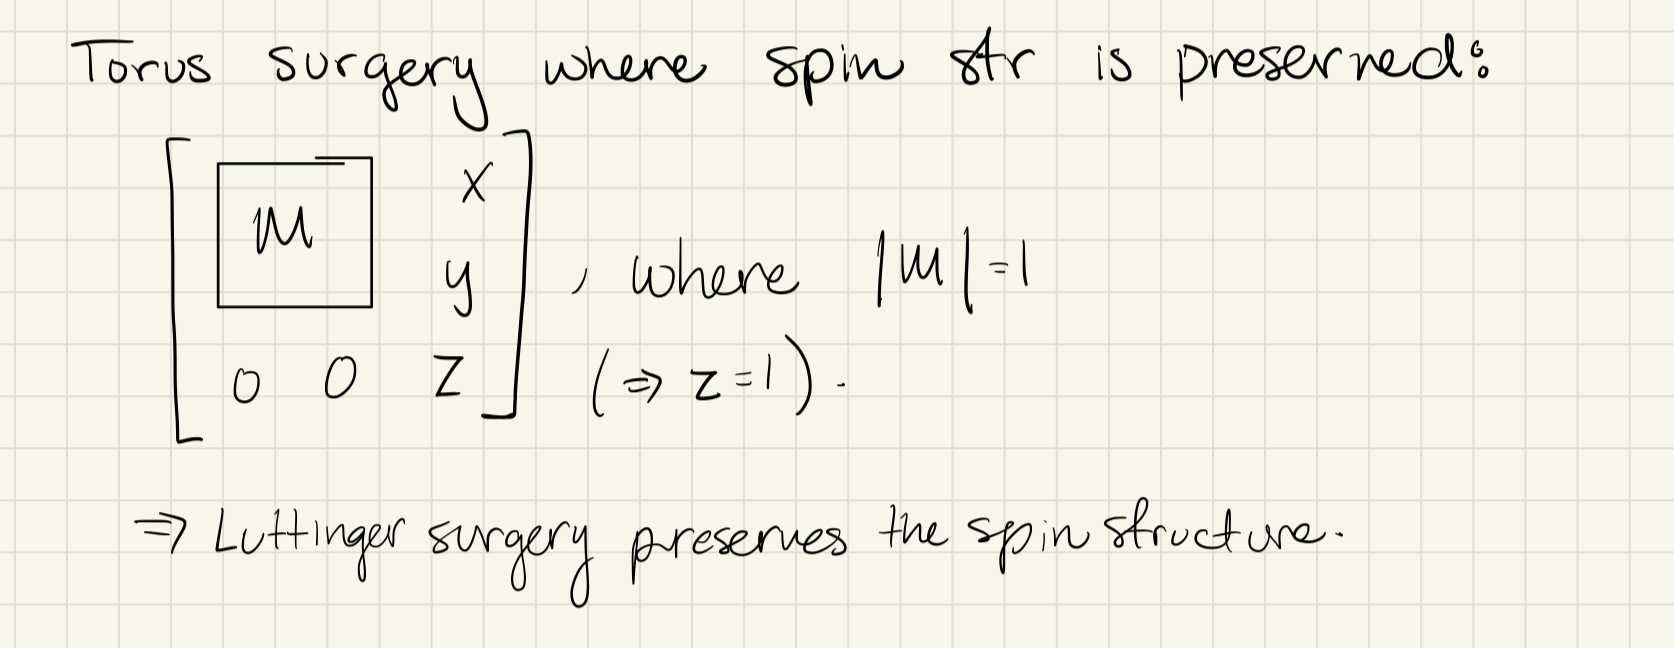 Torus surgery where spin str is preserved:
[ M x
y ] , where |M| = 1
0 0 z (⇒ z = 1).
⇒ Luttinger surgery preserves the spin structure.